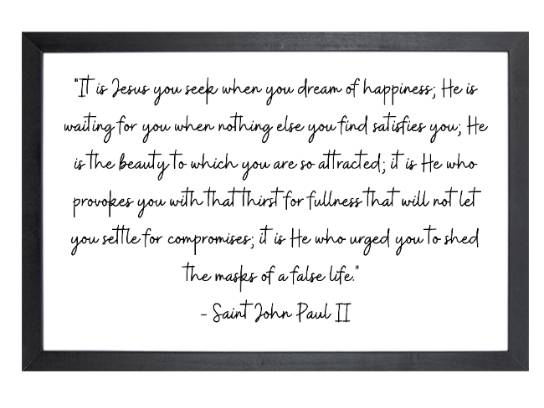 "It is Jesus you seek when you dream of happiness; He is
waiting for you when nothing else you find satisfies you; He
is the beauty to which you are so attracted; it is He who
provokes you with that thirst for fullness that will not let
you settle for compromises; it is He who urged you to shed
the masks of a false life."
- Saint John Paul II